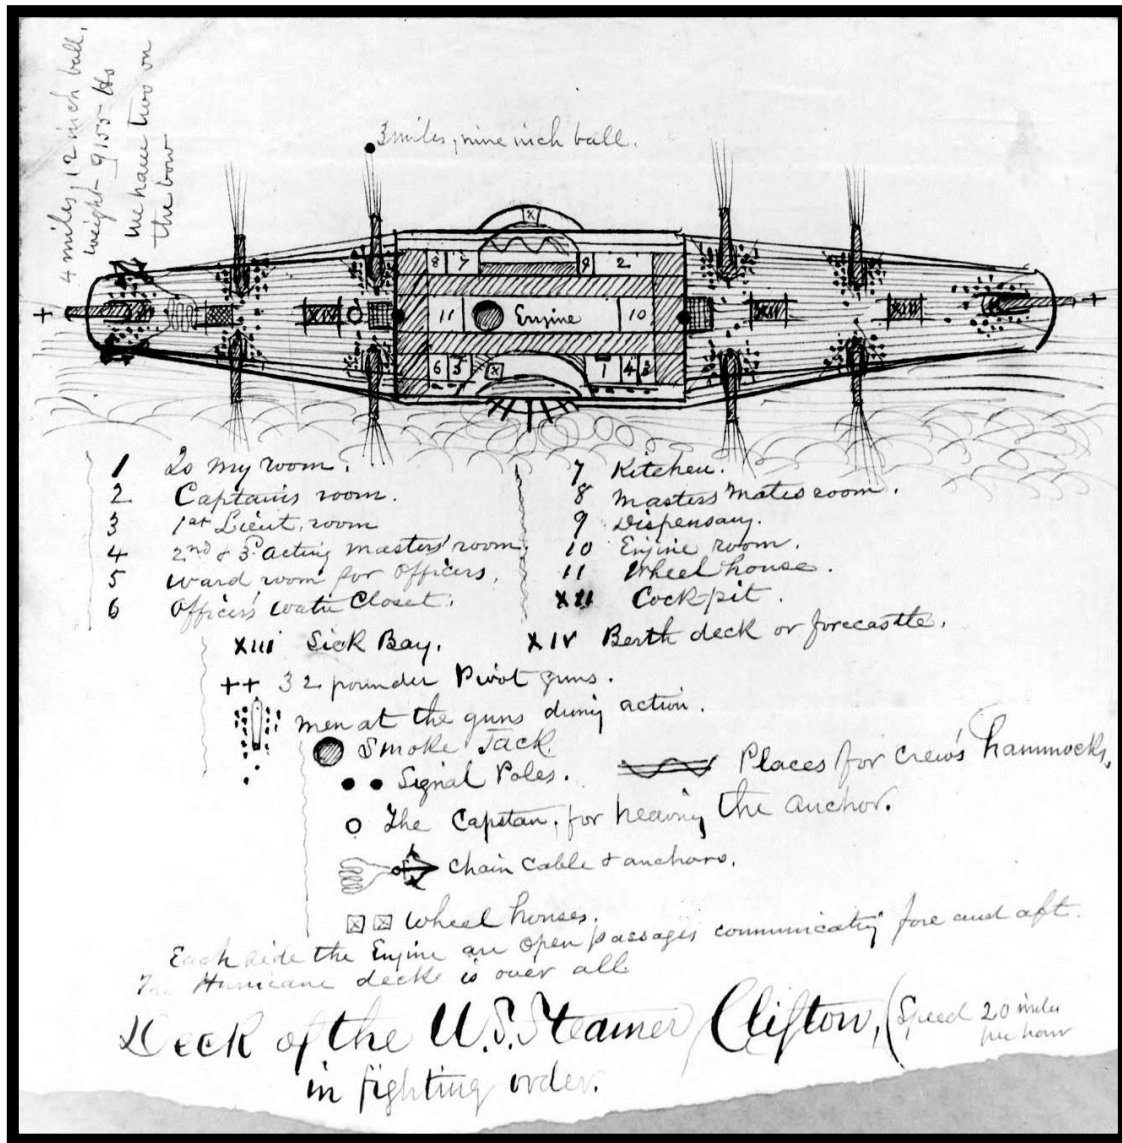 4 miles, 12 inch ball,
weight 9155 lbs
We have two on
the bow
3 miles, nine inch ball.
+
+
8 7 x 9 2
XIV XIII XIII
11 Engine 10
6 5 x 1 4 3
1 Is my room.
2 Captains room.
3 1st Lieut. room
4 2nd & 3d acting masters' room
5 Ward room for officers.
6 Officers' Water Closet.
7 Kitchen.
8 Masters Mates room.
9 Dispensary.
10 Engine room.
11 Wheel house.
XII Cockpit.
XIII Sick Bay.
XIV Berth deck or forecastle.
++ 32 pounder Pivot guns.
men at the guns during action.
Smoke Jack.
Signal Poles.
Places for crew's hammocks.
The Capstan, for heaving the anchor.
Chain Cable & anchors.
x x Wheel houses.
Each side the Engine are open passages communicating fore and aft.
The Hurricane deck is over all.
Deck of the U.S. Steamer Clifton, (Speed 20 miles
per hour
in fighting order.